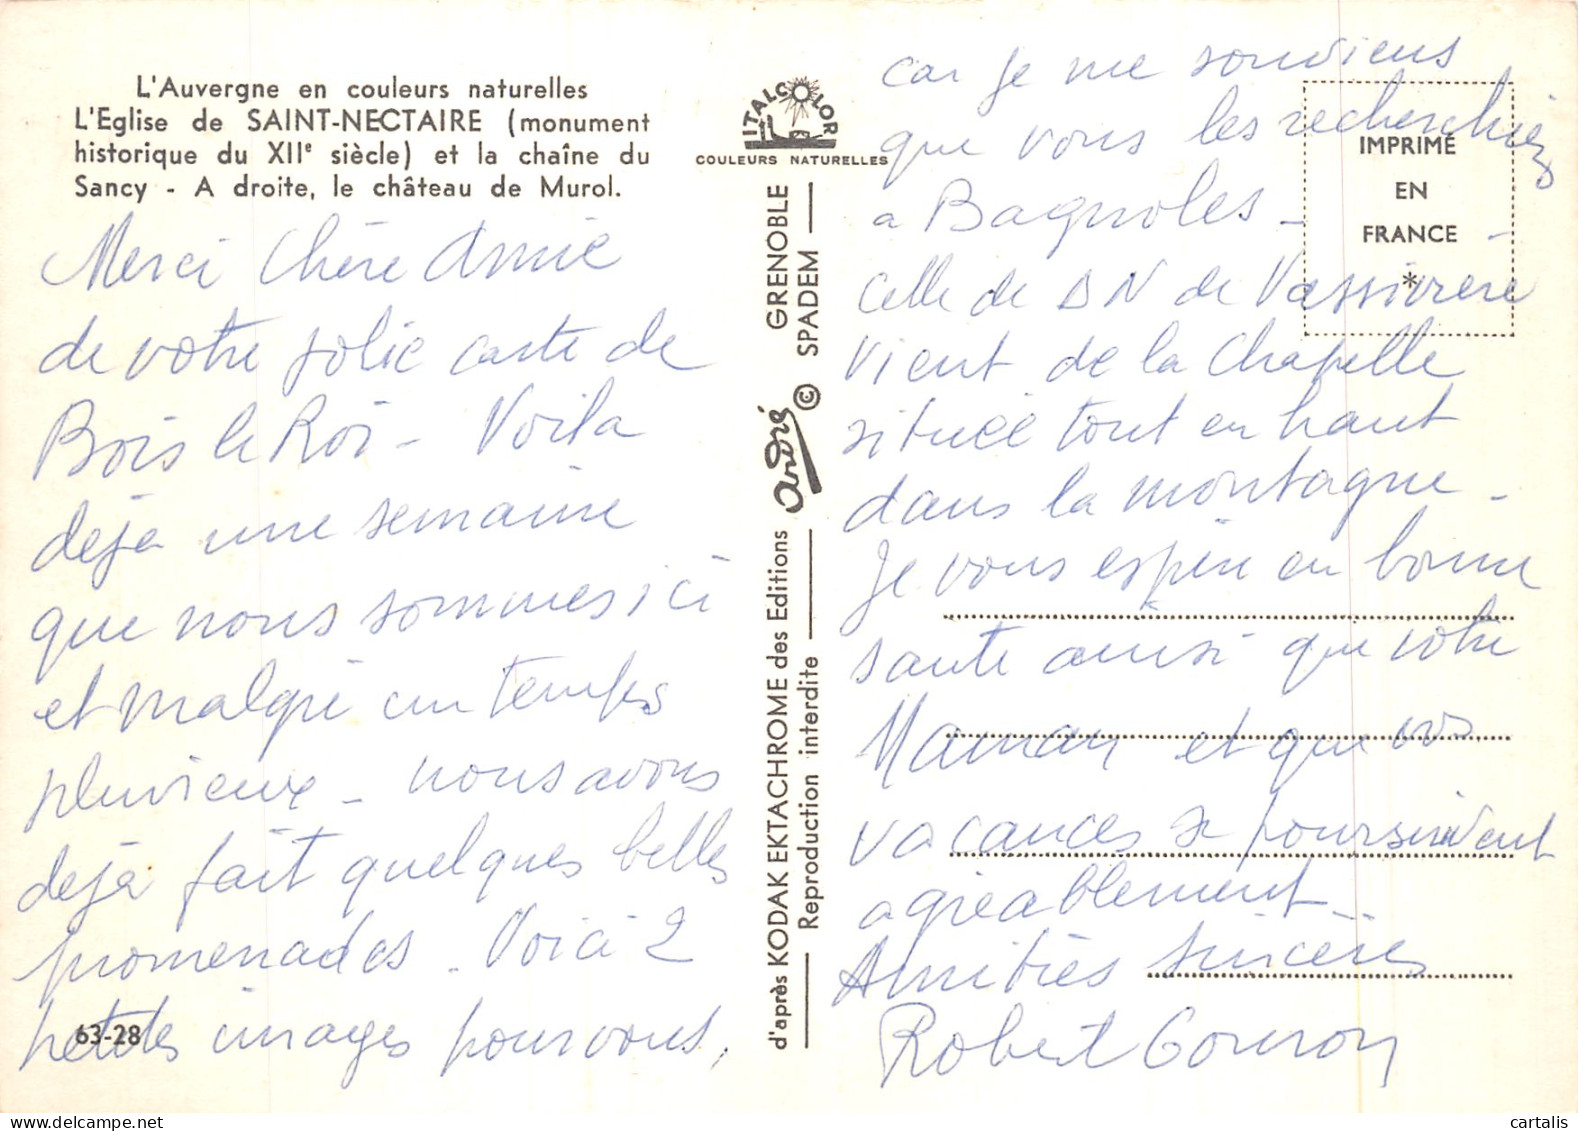 L'Auvergne en couleurs naturelles
L'Eglise de SAINT-NECTAIRE (monument
historique du XIIe siècle) et la chaîne du
Sancy - A droite, le château de Murol.
Merci Chère Annie
de votre jolie carte de
Bois le Roi - Voila
déjà une semaine
que nous sommes ici
et malgré un temps
pluvieux - nous avons
déjà fait quelques belles
promenades. Voici 2
petites images pour vous,
63-28
ITALCOLOR
COULEURS NATURELLES
GRENOBLE
© SPADEM
André
d'après KODAK EKTACHROME des Editions
Reproduction interdite
car je me souviens
que vous les recherchiez
a Bagnoles -
Celle de DN de Vassivière
vient de la Chapelle
située tout en haut
dans la montagne -
Je vous espère en bonne
santé ainsi que votre
Maman et que vos
vacances se poursuivent
agréablement -
Amitiés sincères
Robert
IMPRIMÉ
EN
FRANCE
*
cartalis